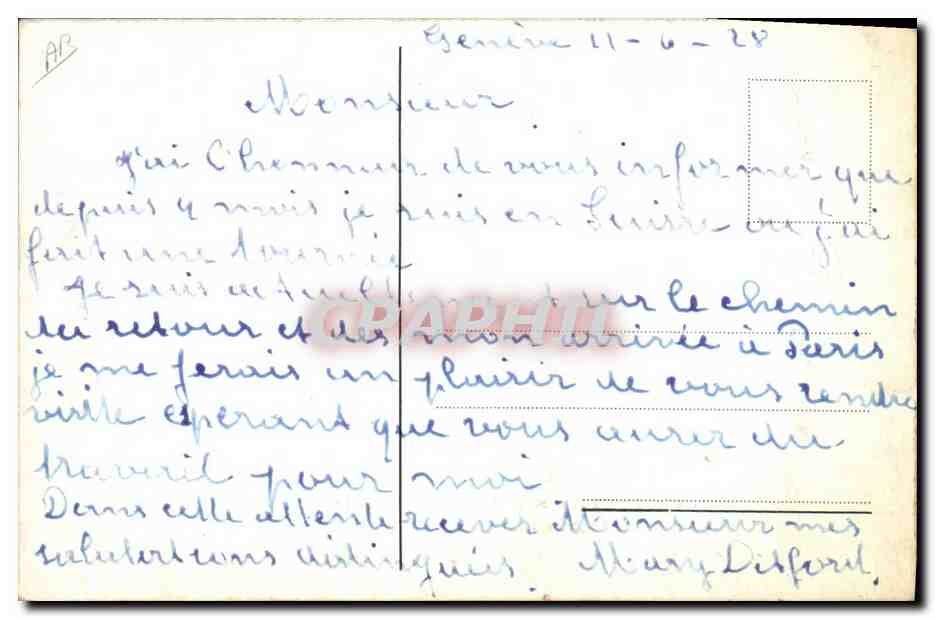 AB
Genève 11-6-28
Monsieur
J'ai l'honneur de vous informer que
depuis 4 mois je suis en Suisse ou j'ai
fait une tournée
Je suis actuellement sur le chemin
du retour et des mon arrivée à Paris
je me ferais un plaisir de vous rendre
visite esperant que vous aurer du
travail pour moi
Dans cette attente recever Monsieur mes
salutations distingués. Mary Disford.
CPAPHIL